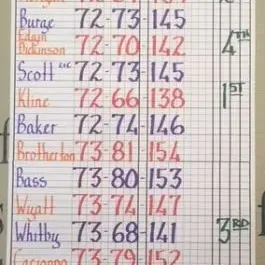 Burge 72-73-145
Edwin Dickinson 72-70-142 4TH
Scott LLC 72-73-145
Kline 72 66 138 1ST
Baker 72-74-146
Brotherton 73-81-154
Bass 73-80-153
Wyatt 73-74-147
Whitby 73-68-141 3RD
73 79 152